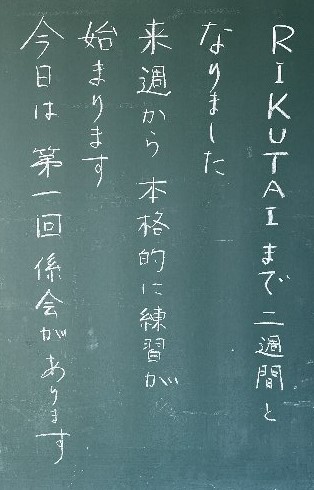 RIKUTAIまで二週間と
なりました
来週から本格的に練習が
始まります
今日は第一回係会があります